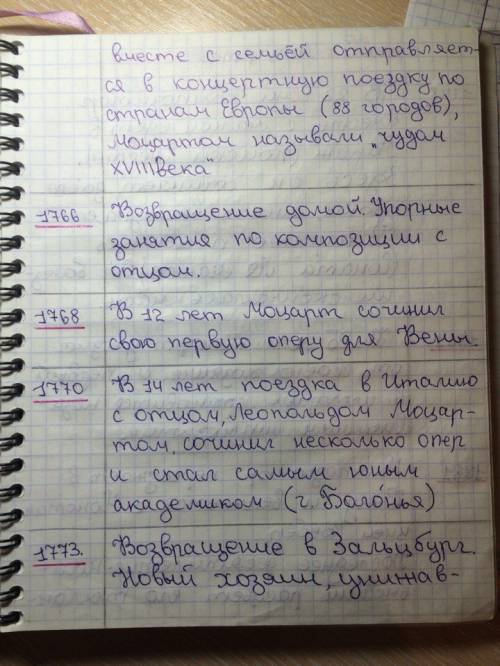 вместе с семьёй отправляет-
ся в концертную поездку по
странам Европы (88 городов),
Моцартом называли „чудом
XVIII века"
1766 Возвращение домой. Упорные
занятия по композиции с
отцом.
1768 В 12 лет Моцарт сочинил
свою первую оперу для Вены.
1770 В 14 лет поездка в Италию
с отцом, Леопольдом Моцар-
том, сочинил несколько опер
и стал самым юным
академиком (г. Болонья)
1773. Возвращение в Зальцбург.
Новый хозяин, унижав-